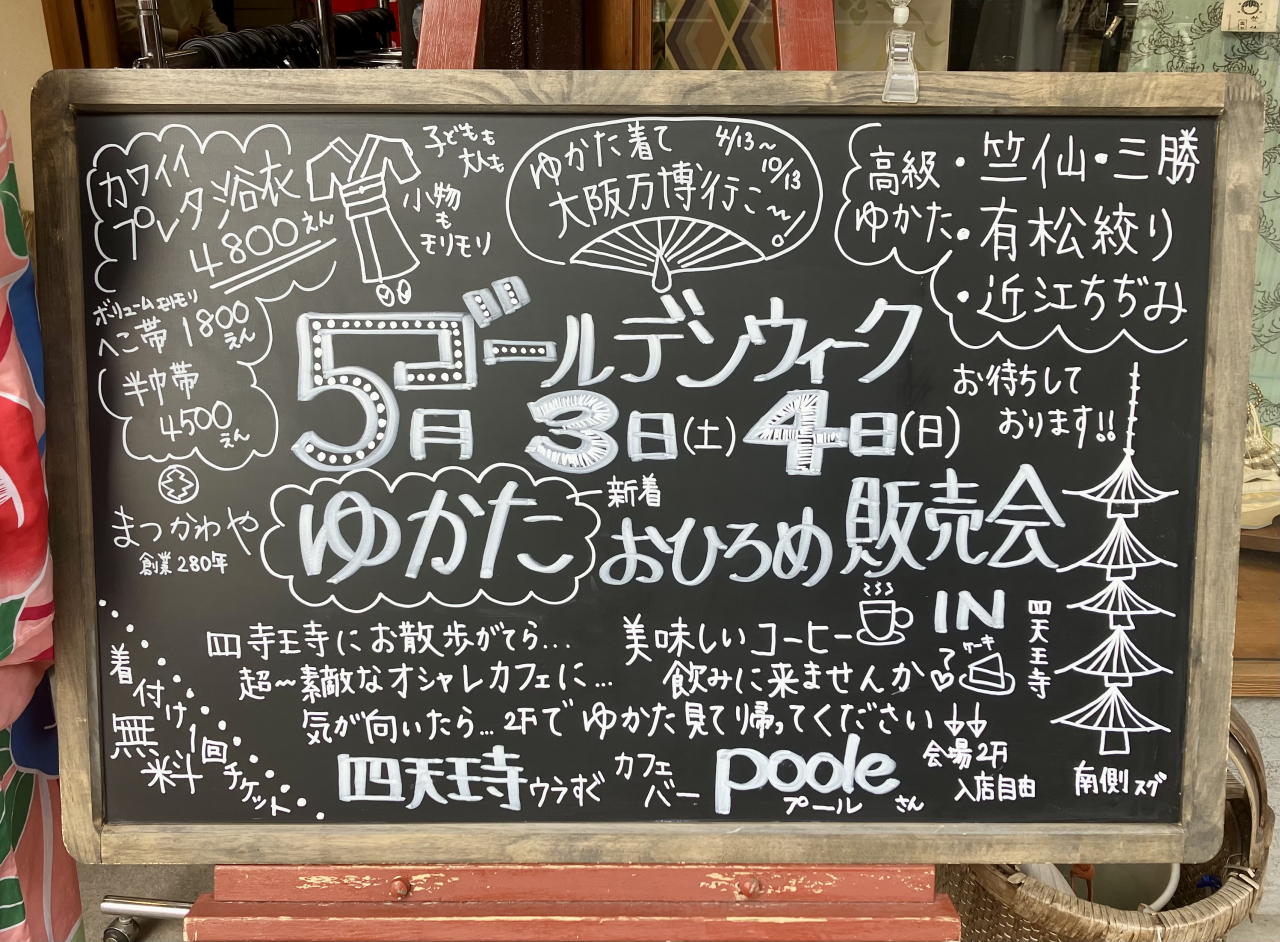 カワイイ
プレタ浴衣
4800えん
子どもも
大人も
小物
も
モリモリ
ゆかた着て
4/13〜
10/13
大阪万博行こ〜!
高級
ゆかた
・竺仙・三勝
・有松絞り
・近江ちぢみ
ボリュームモリモリ
へこ帯 1800
えん
半巾帯
4500
えん
まつかわや
創業280年
ゴールデンウィーク
5月3日(土)4日(日)
お待ちして
おります!!
ゆかた
新着
おひろめ販売会
IN
四天王寺
四寺王寺にお散歩がてら...
超〜素敵なオシャレカフェに...
気が向いたら...2Fでゆかた見て帰ってください↓↓
美味しいコーヒー
飲みに来ませんか?
ケーキ
着付け
無料
1回
チケット
四天王寺ウラすぐ
カフェ
バー
poole
プール
さん
会場2F
入店自由
南側スグ